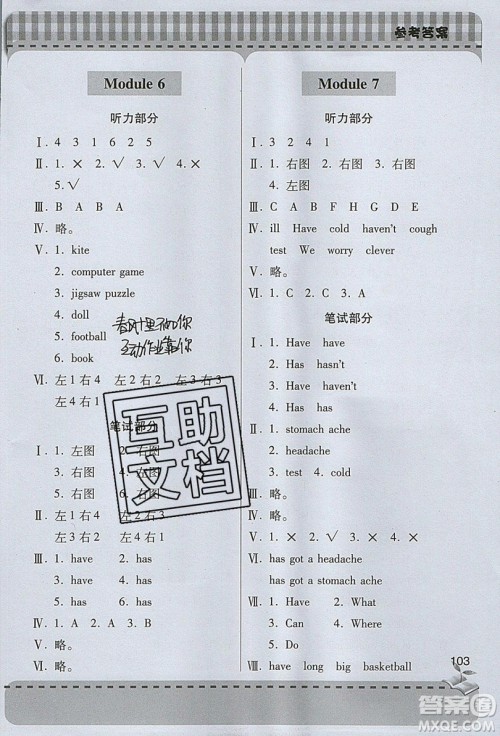 参考答案
Module 6
听力部分
Ⅰ. 4 3 1 6 2 5
Ⅱ. 1. × 2. √ 3. √ 4. ×
5. √
Ⅲ. B A B A
Ⅳ. 略。
Ⅴ. 1. kite
2. computer game
3. jigsaw puzzle
4. doll
5. football
6. book
Ⅵ. 左1右4 左2右2 左3右3
左4右1
笔试部分
Ⅰ. 1. 左图 2. 右图
3. 右图 4. 左图
5. 右图 6. 右图
Ⅱ. 左1右4 左2右1
左3右2 左4右3
Ⅲ. 1. have 2. has
3. have 4. have
5. has 6. has
Ⅳ. 1. A 2. A 3. B
Ⅴ. 略。
Ⅵ. 略。
Module 7
听力部分
Ⅰ. 3 2 4 1
Ⅱ. 1. 右图 2. 右图 3. 右图
4. 左图
Ⅲ. C A B F H G D E
Ⅳ. ill Have cold haven't cough
test We worry clever
Ⅴ. 略。
Ⅵ. 1. C 2. C 3. A
笔试部分
Ⅰ. 1. Have have
2. Has hasn't
3. Has has
4. Have haven't
Ⅱ. 1. stomach ache
2. headache
3. test 4. cold
Ⅲ. 略。
Ⅳ. 略。
Ⅴ. 1. × 2. √ 3. × 4. ×
Ⅵ. has got a headache
has got a stomach ache
Ⅶ. 1. Have 2. What
3. Has 4. Have
5. Do
Ⅷ. have long big basketball
103
互助
文档
答案圈
MXQE.COM